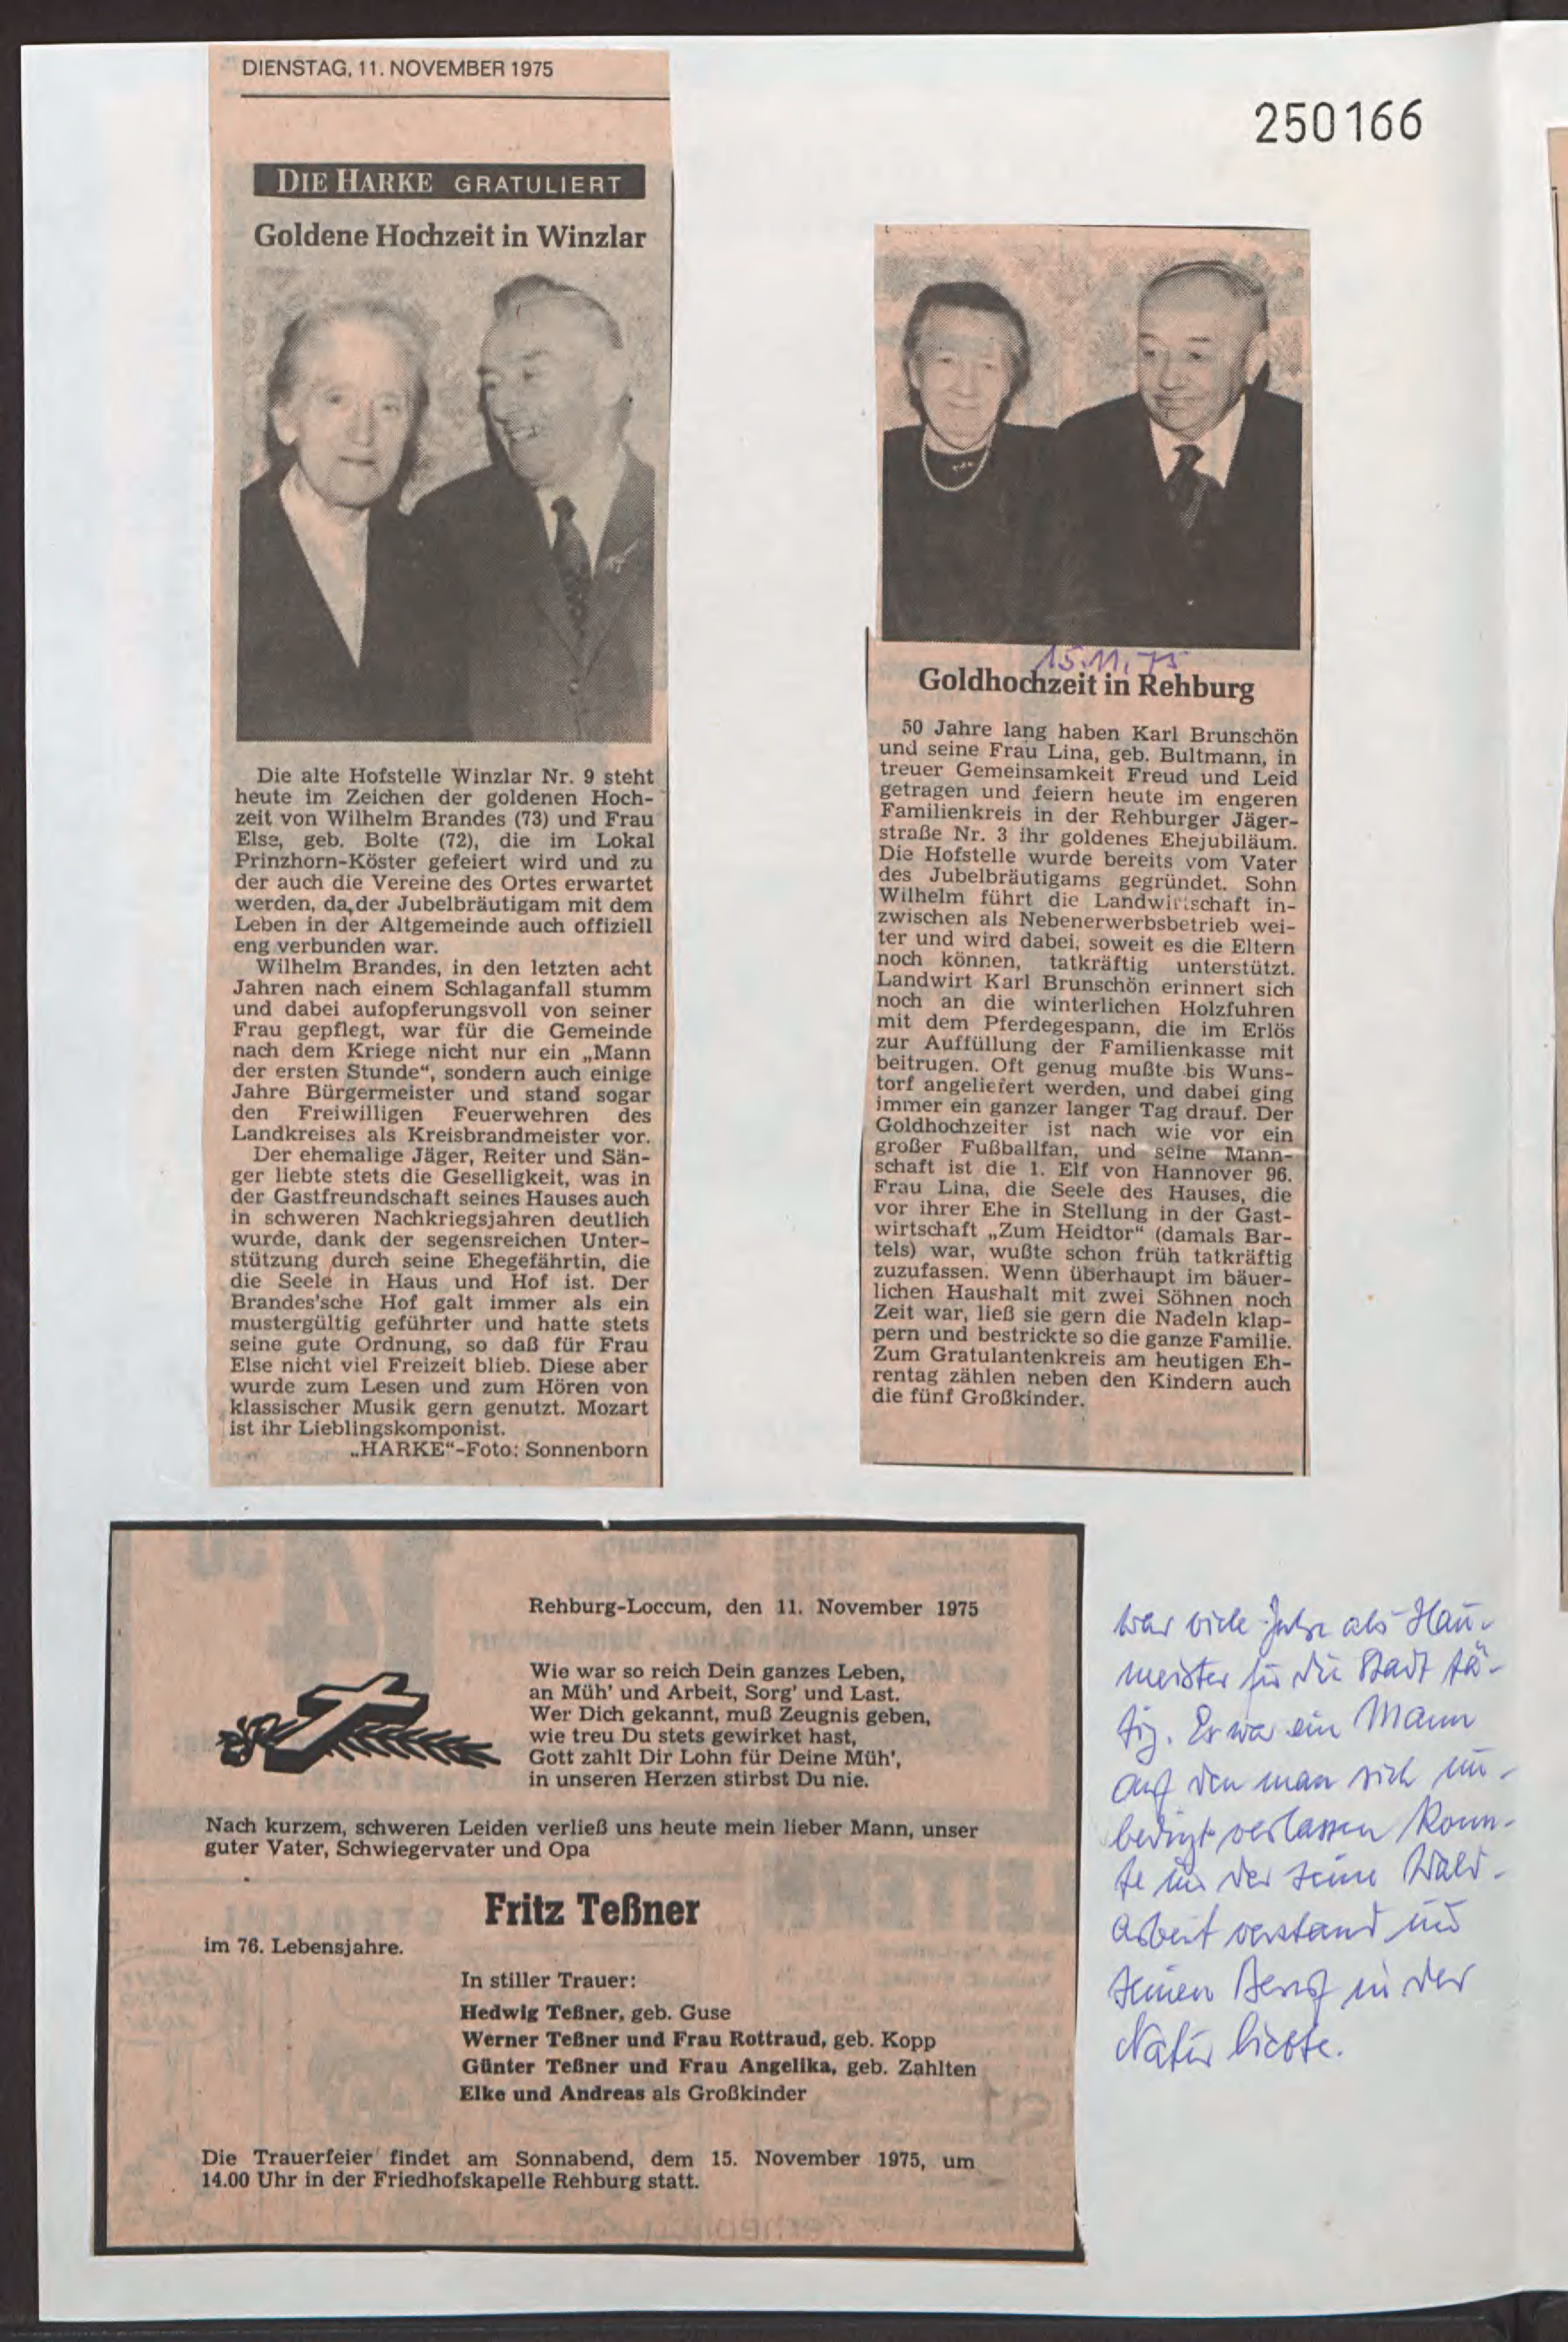 DIENSTAG, 11. NOVEMBER 1975
250166
DIE HARKE GRATULIERT
Goldene Hochzeit in Winzlar
Die alte Hofstelle Winzlar Nr. 9 steht
heute im Zeichen der goldenen Hoch-
zeit von Wilhelm Brandes (73) und Frau
Else, geb. Bolte (72), die im Lokal
Prinzhorn-Köster gefeiert wird und zu
der auch die Vereine des Ortes erwartet
werden, da der Jubelbräutigam mit dem
Leben in der Altgemeinde auch offiziell
eng verbunden war.
Wilhelm Brandes, in den letzten acht
Jahren nach einem Schlaganfall stumm
und dabei aufopferungsvoll von seiner
Frau gepflegt, war für die Gemeinde
nach dem Kriege nicht nur ein „Mann
der ersten Stunde“, sondern auch einige
Jahre Bürgermeister und stand sogar
den Freiwilligen Feuerwehren des
Landkreises als Kreisbrandmeister vor.
Der ehemalige Jäger, Reiter und Sän-
ger liebte stets die Geselligkeit, was in
der Gastfreundschaft seines Hauses auch
in schweren Nachkriegsjahren deutlich
wurde, dank der segensreichen Unter-
stützung durch seine Ehegefährtin, die
die Seele in Haus und Hof ist. Der
Brandes'sche Hof galt immer als ein
mustergültig geführter und hatte stets
seine gute Ordnung, so daß für Frau
Else nicht viel Freizeit blieb. Diese aber
wurde zum Lesen und zum Hören von
klassischer Musik gern genutzt. Mozart
ist ihr Lieblingskomponist.
„HARKE“-Foto: Sonnenborn
15.11.75
Goldhochzeit in Rehburg
50 Jahre lang haben Karl Brunschön
und seine Frau Lina, geb. Bultmann, in
treuer Gemeinsamkeit Freud und Leid
getragen und feiern heute im engeren
Familienkreis in der Rehburger Jäger-
straße Nr. 3 ihr goldenes Ehejubiläum.
Die Hofstelle wurde bereits vom Vater
des Jubelbräutigams gegründet. Sohn
Wilhelm führt die Landwirtschaft in-
zwischen als Nebenerwerbsbetrieb wei-
ter und wird dabei, soweit es die Eltern
noch können, tatkräftig unterstützt.
Landwirt Karl Brunschön erinnert sich
noch an die winterlichen Holzfuhren
mit dem Pferdegespann, die im Erlös
zur Auffüllung der Familienkasse mit
beitrugen. Oft genug mußte bis Wuns-
torf angeliefert werden, und dabei ging
immer ein ganzer langer Tag drauf. Der
Goldhochzeiter ist nach wie vor ein
großer Fußballfan, und seine Mann-
schaft ist die 1. Elf von Hannover 96.
Frau Lina, die Seele des Hauses, die
vor ihrer Ehe in Stellung in der Gast-
wirtschaft „Zum Heidtor“ (damals Bar-
tels) war, wußte schon früh tatkräftig
zuzufassen. Wenn überhaupt im bäuer-
lichen Haushalt mit zwei Söhnen noch
Zeit war, ließ sie gern die Nadeln klap-
pern und bestrickte so die ganze Familie.
Zum Gratulantenkreis am heutigen Eh-
rentag zählen neben den Kindern auch
die fünf Großkinder.
Rehburg-Loccum, den 11. November 1975
Wie war so reich Dein ganzes Leben,
an Müh' und Arbeit, Sorg' und Last.
Wer Dich gekannt, muß Zeugnis geben,
wie treu Du stets gewirket hast,
Gott zahlt Dir Lohn für Deine Müh',
in unseren Herzen stirbst Du nie.
Nach kurzem, schweren Leiden verließ uns heute mein lieber Mann, unser
guter Vater, Schwiegervater und Opa
Fritz Teßner
im 76. Lebensjahre.
In stiller Trauer:
Hedwig Teßner, geb. Guse
Werner Teßner und Frau Rottraud, geb. Kopp
Günter Teßner und Frau Angelika, geb. Zahlten
Elke und Andreas als Großkinder
Die Trauerfeier findet am Sonnabend, dem 15. November 1975, um
14.00 Uhr in der Friedhofskapelle Rehburg statt.
War viele Jahre als Hau-
meister für die Stadt tä-
tig. Es war ein Mann
auf den man sich un-
bedingt verlassen konn-
te und der seine Wald-
arbeit verstand und
seinen Beruf in der
Natur liebte.